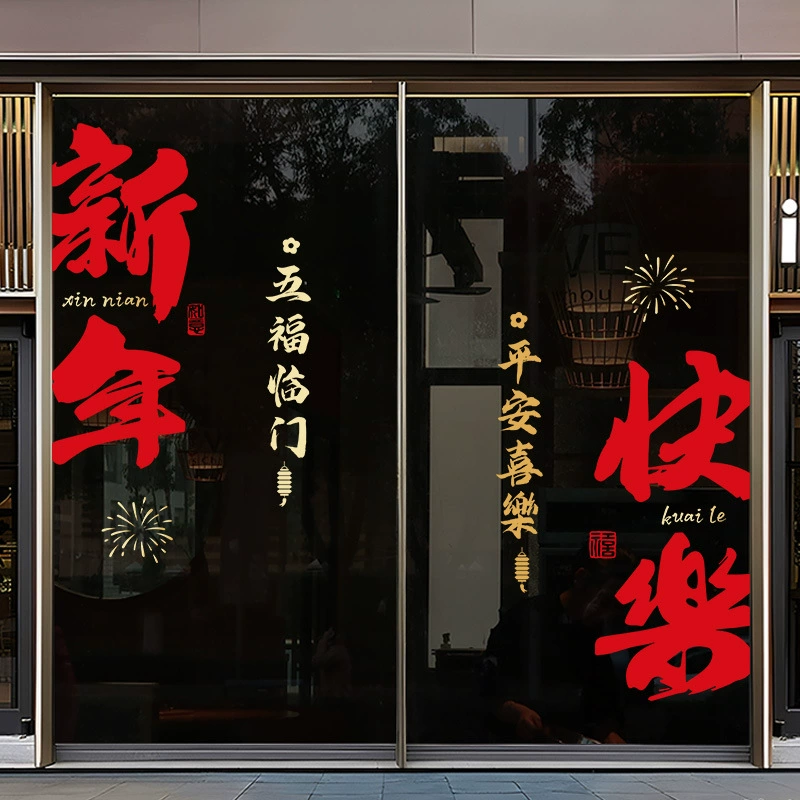 新年
xin nian
五福临门
平安喜樂
快樂
kuai le
福